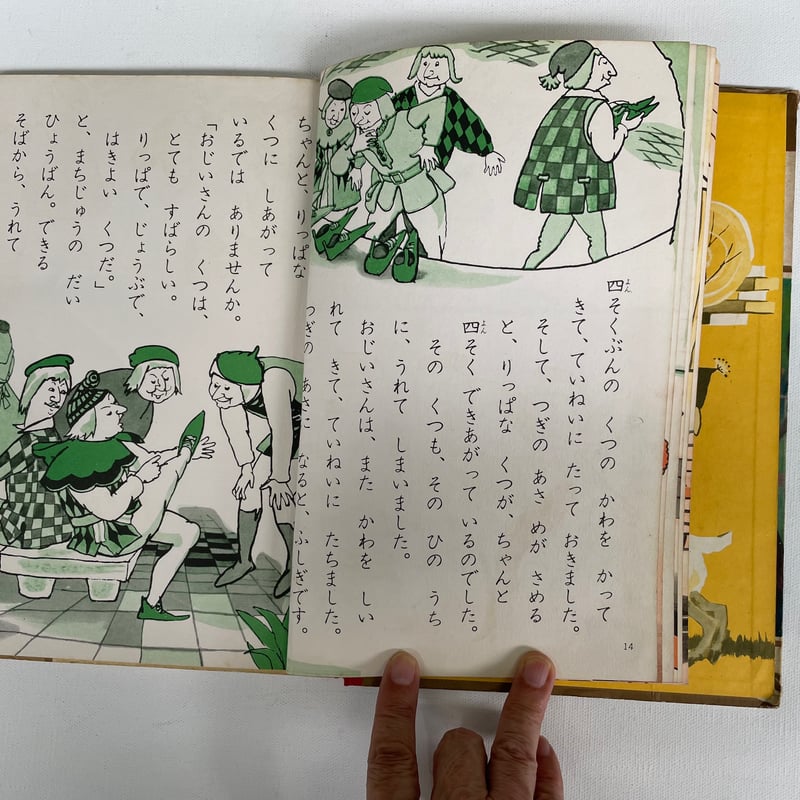 四そくぶんの くつの かわを かって
よん
きて、ていねいに たって おきました。
そして、つぎの あさ めが さめる
と、りっぱな くつが、ちゃんと
四そく できあがって いるのでした。
よん
その くつも、その ひの うち
に、うれて しまいました。
おじいさんは、また かわを しい
れて きて、ていねいに たちました。
つぎの あさに なると、ふしぎです。
14
ちゃんと、りっぱな
くつに しあがって
いるでは ありませんか。
「おじいさんの くつは、
とても すばらしい。
りっぱで、じょうぶで、
はきよい くつだ。」
と、まちじゅうの だい
ひょうばん。できる
そばから、うれて